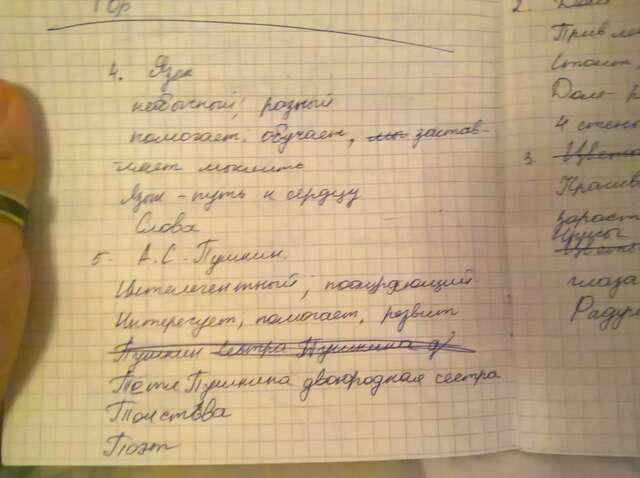 4. Язык
необычный, разный
помогает, обучает, мы застав-
ляет мыслить
Язык - путь к сердцу
Слова
5. А.С. Пушкин.
Интелегентный, поощряющий
Интересует, помогает, развит
Пушкин сестра Пушкина
Тётя Пушкина двоюродная сестра
Толстова
Поэт
2.
Привле
Стоит,
Дом-
4 стены
3.
Красив
зараст
глаза
Радуе